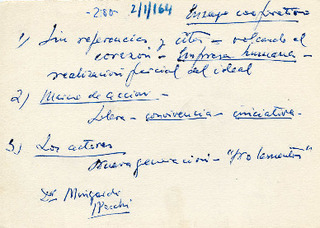 -2:80- 2/1/64 Ensayo cooperativo
1) Sin referencias y citas - volcando el
corazón - Empresa humana -
realización parcial del ideal
2) Marco de acción -
Libre - convivencia - iniciativa -
3) Los actores
Nueva generación -
Dr. Mingardo